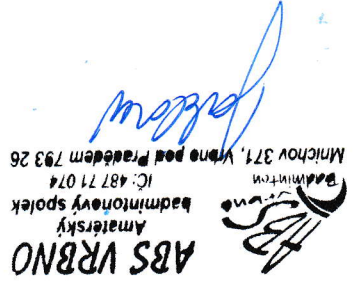 ABS VRBNO
Amatérský
badmintonový spolek
IČ: 487 71 074
Mnichov 371, Vrbno pod Pradědem 793 26
ABS
Vrbno
Badminton